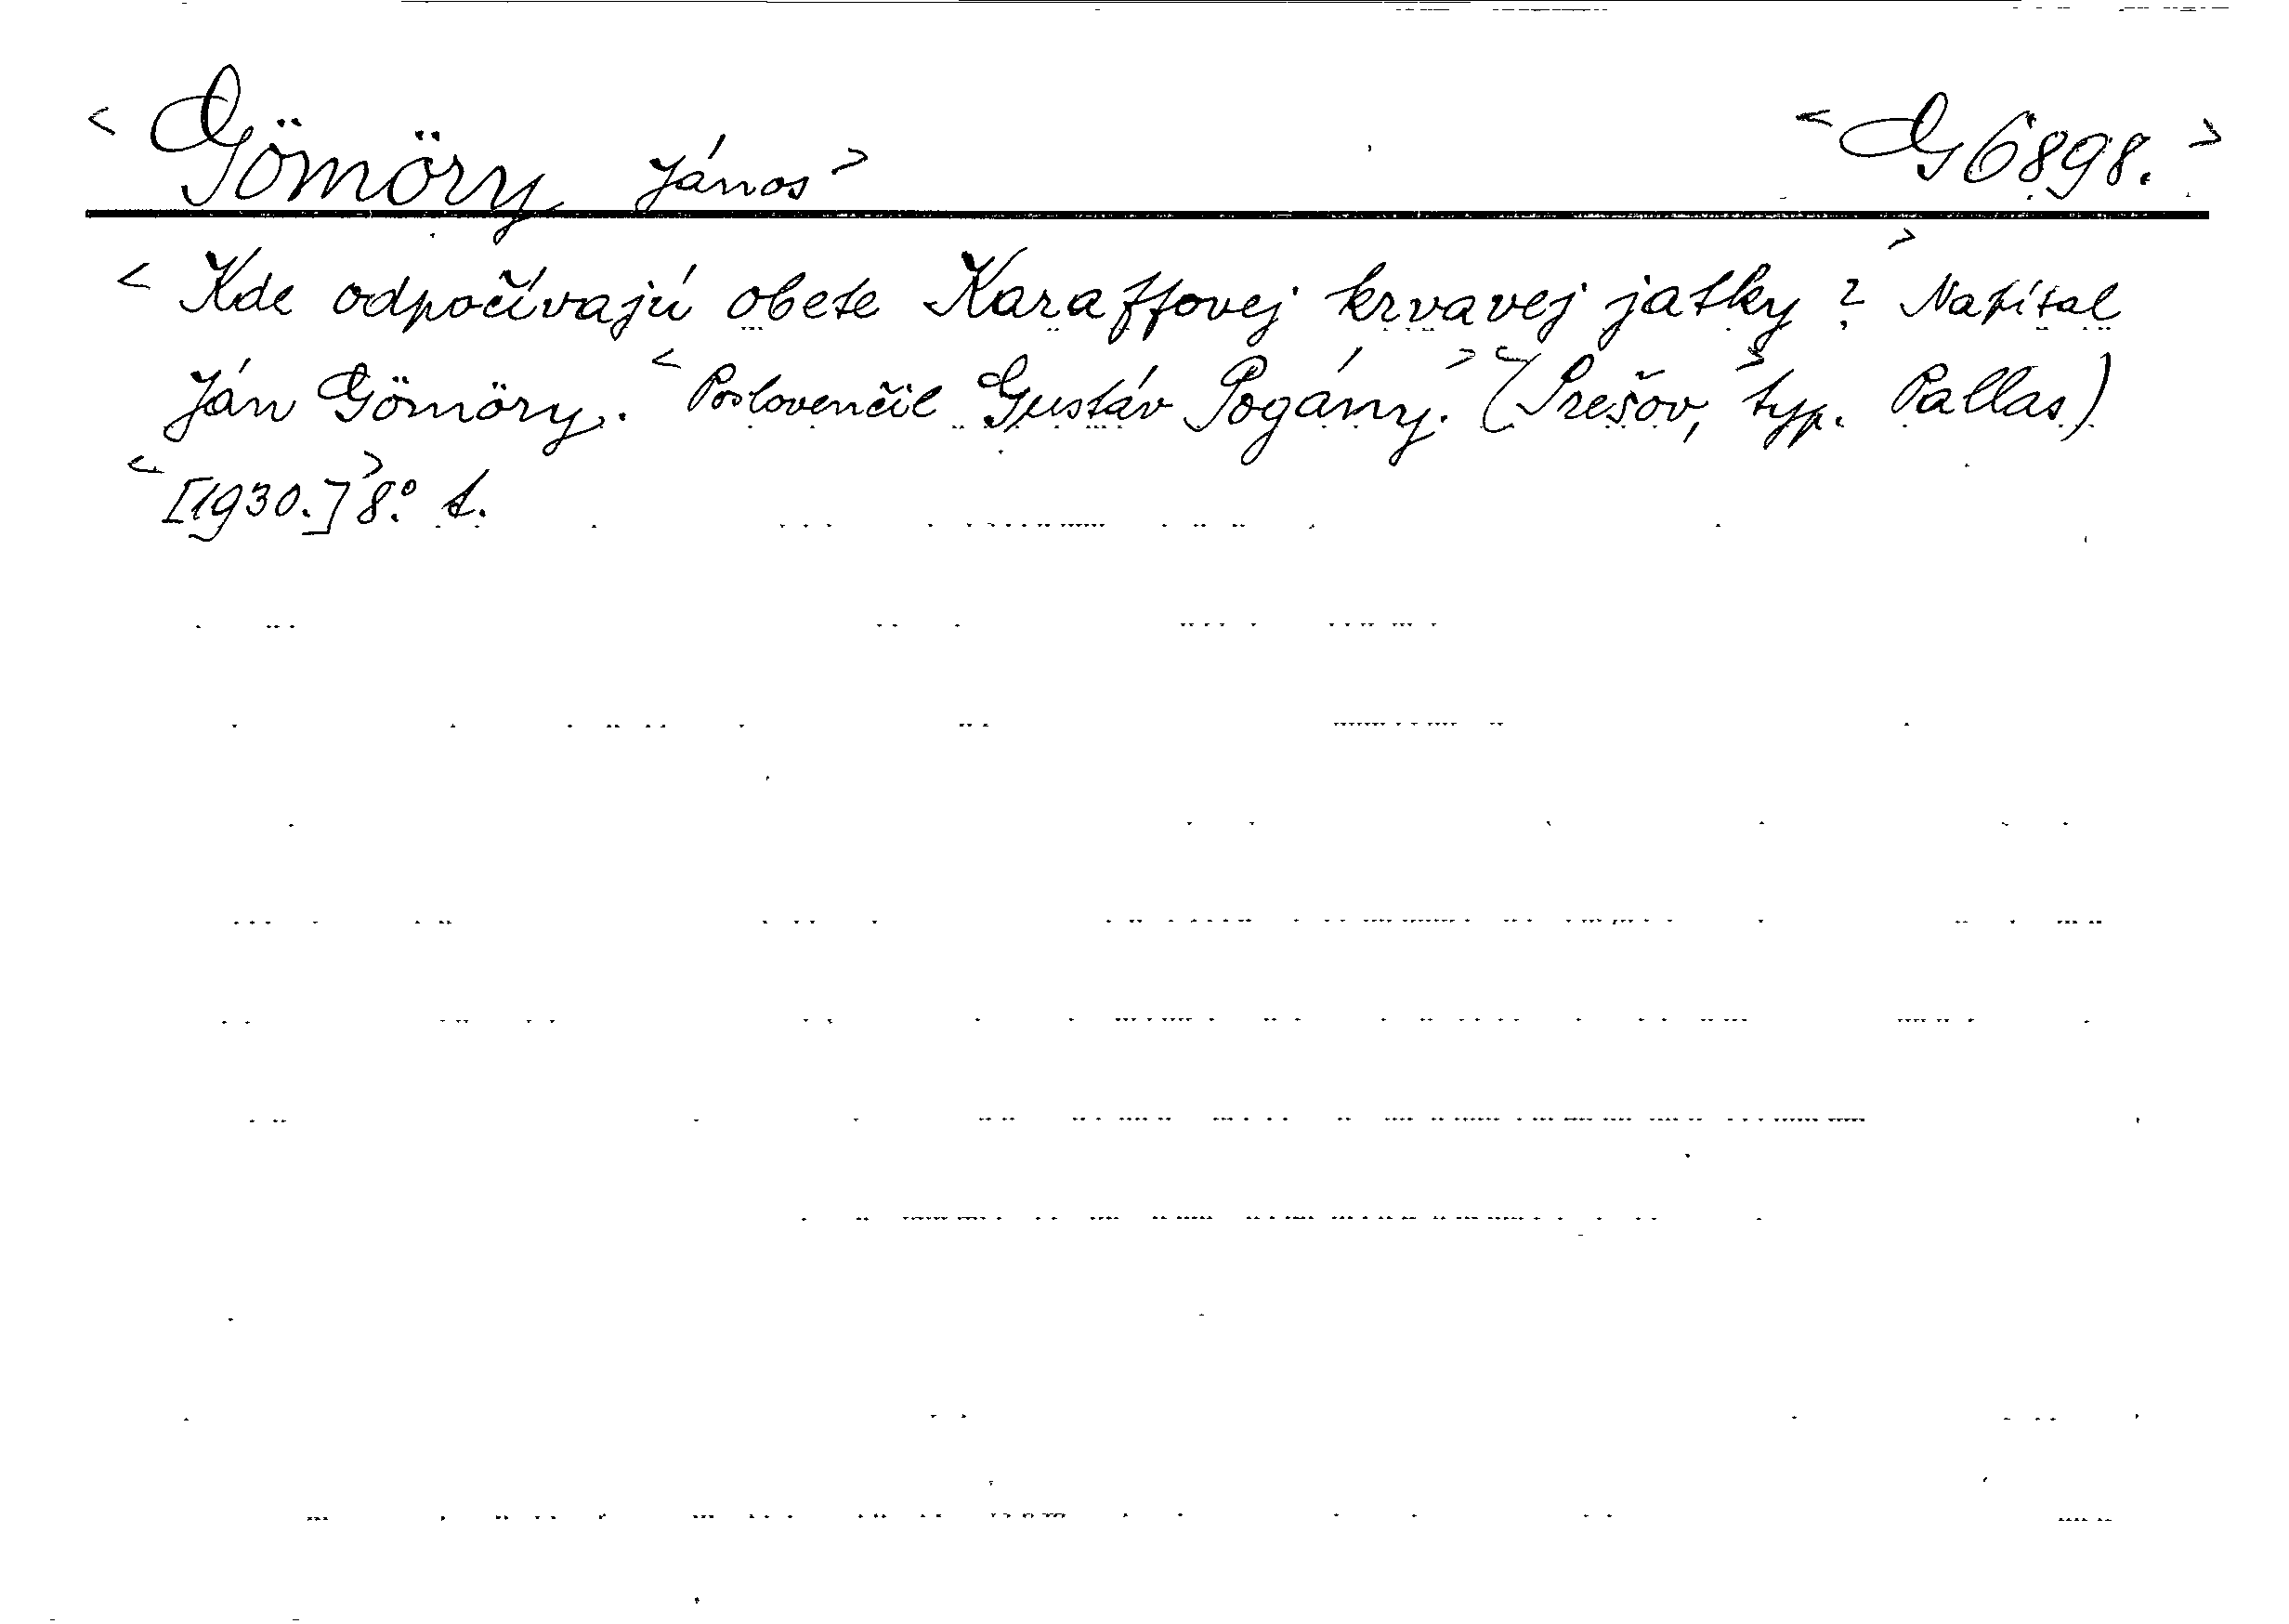 < Gömöry János > < G 6898. >
< Kde odpočívajú obete Karaffovej krvavej jatky ? > Napísal
Ján Gömöry. < Poslovenčil Gustáv Pogány. > < (Prešov, > typ. Pallas)
< [1930.] > 8.° t.